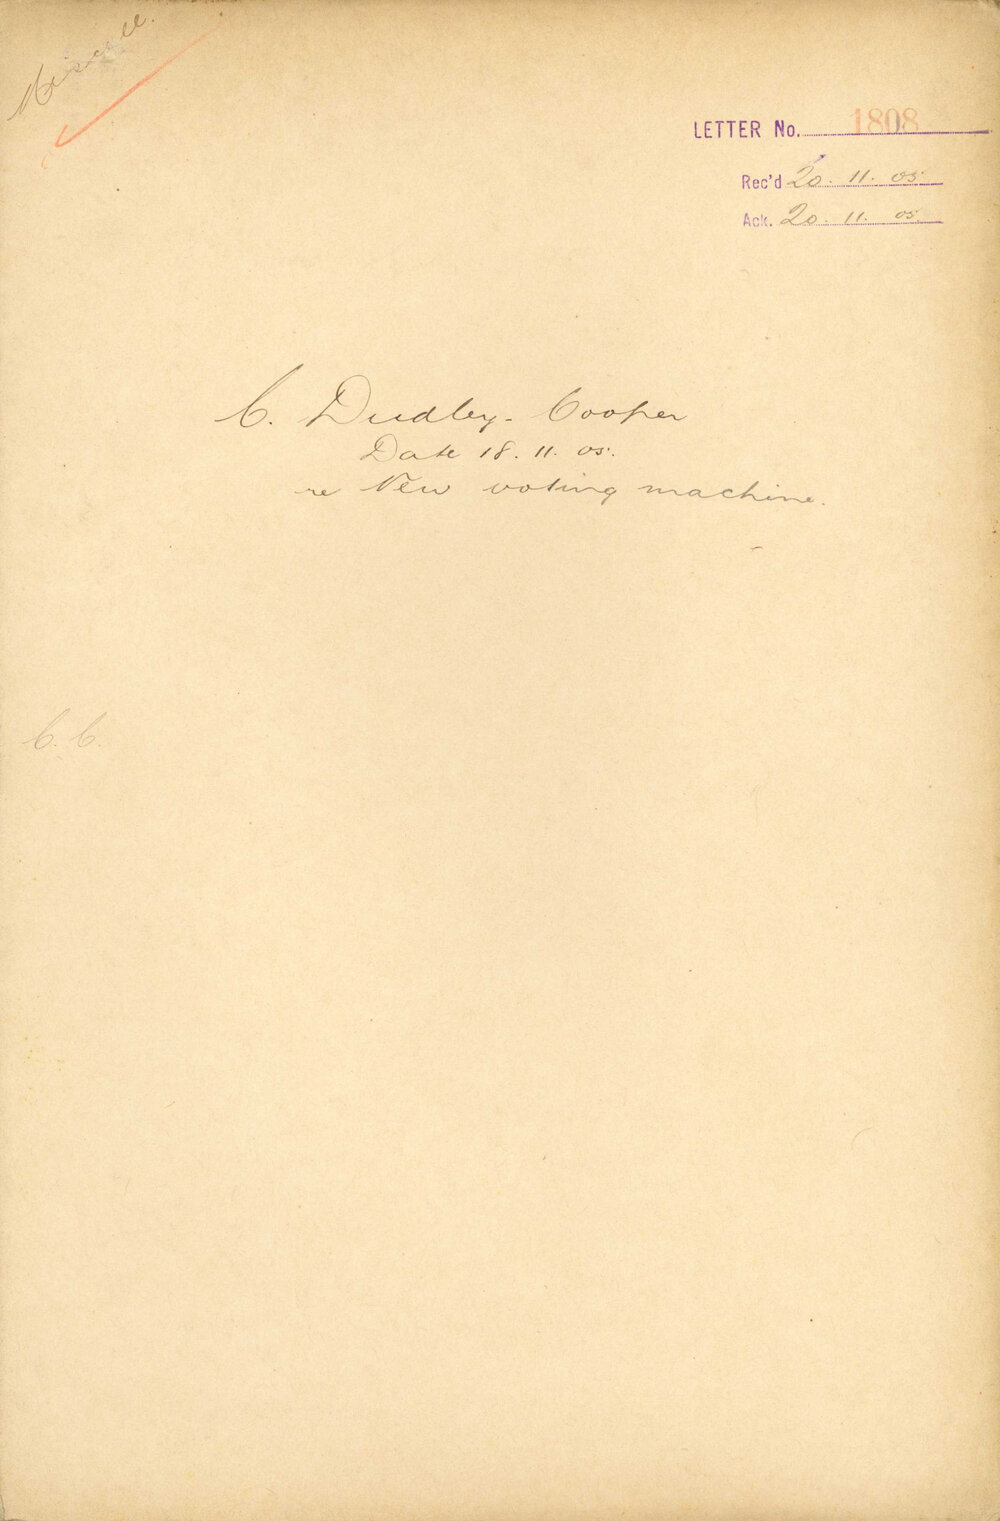 Miscell.
LETTER No. 1808
Rec'd 20. 11. 05.
Ack. 20. 11. 05.
C. Dudley-Cooper
Date 18. 11. 05.
re New voting machine.
C. C.